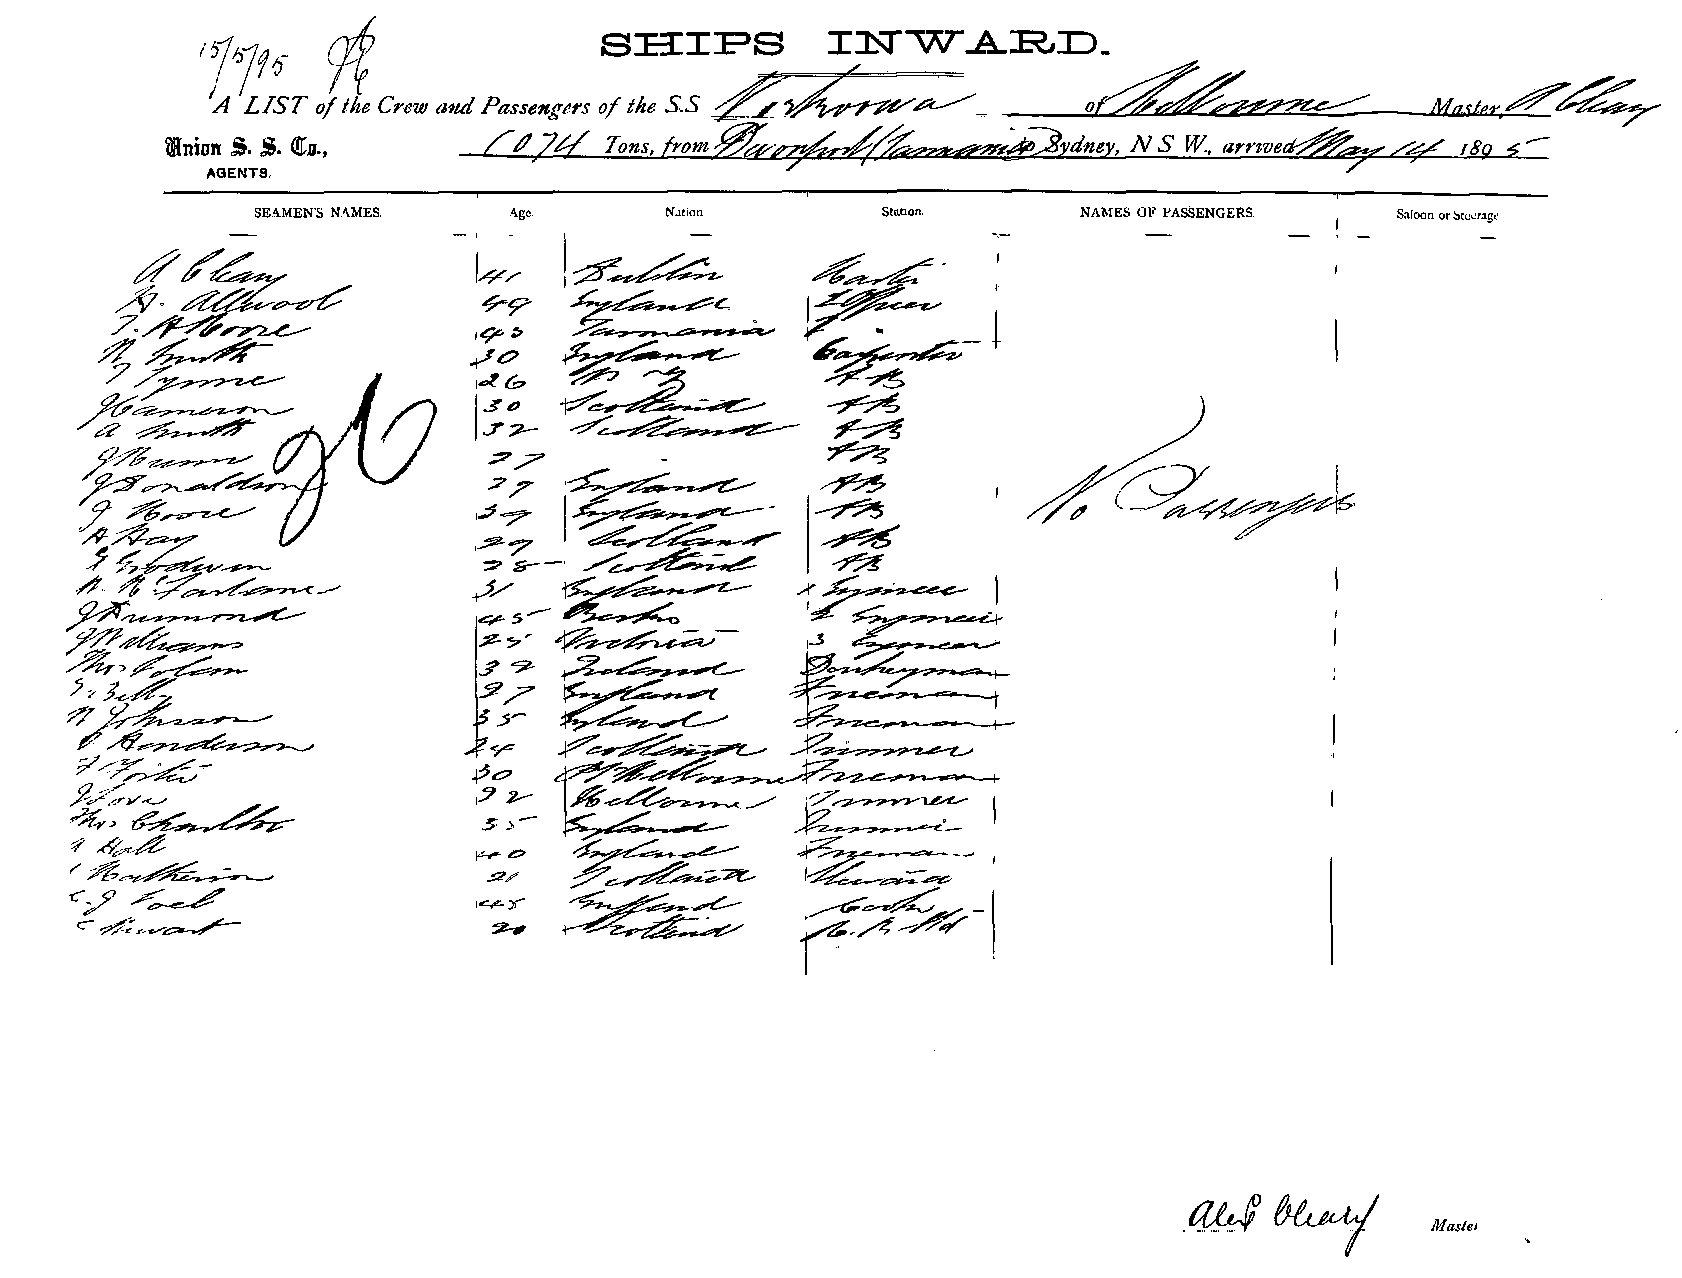 15/5/95
SHIPS INWARD.
A LIST of the Crew and Passengers of the S.S of Melbourne Master, A Cleary
Union S. S. Co., 1074 Tons, from Devonport (Tasmania) Sydney, N S W., arrived May 14 1895
AGENTS.
SEAMEN'S NAMES. Age. Nation Station. NAMES OF PASSENGERS. Saloon or Steerage
A Cleary 41 Dublin Master
H. Allwood 49 England Officer
T. A Moore 43 Tasmania
Smith 30 England Carpenter
26 AB
J Cameron 30 Scotland AB
A Smith 32 Scotland AB
J Munn 27 AB
J Donaldson 27 England AB
J Moore 39 England AB
A Hay 29 Scotland AB
Goodwin 28 Scotland AB
McFarlane 31 England 1 Engineer
J Drummond 45 2 Engineer
J Williams 25 Victoria 3 Engineer
Thos 39 Ireland Donkeyman
27 England Fireman
N Johnson 35 England Fireman
Henderson 24 Scotland Trimmer
F Foster 30 Pt Melbourne Fireman
J Love 32 Melbourne Trimmer
Thos Charlton 35 England Trimmer
Hall 40 England Fireman
Matheson 21 Scotland Steward
C. J 45 England Cook
C Stewart 20 Scotland
No Passengers
Alex Cleary Master